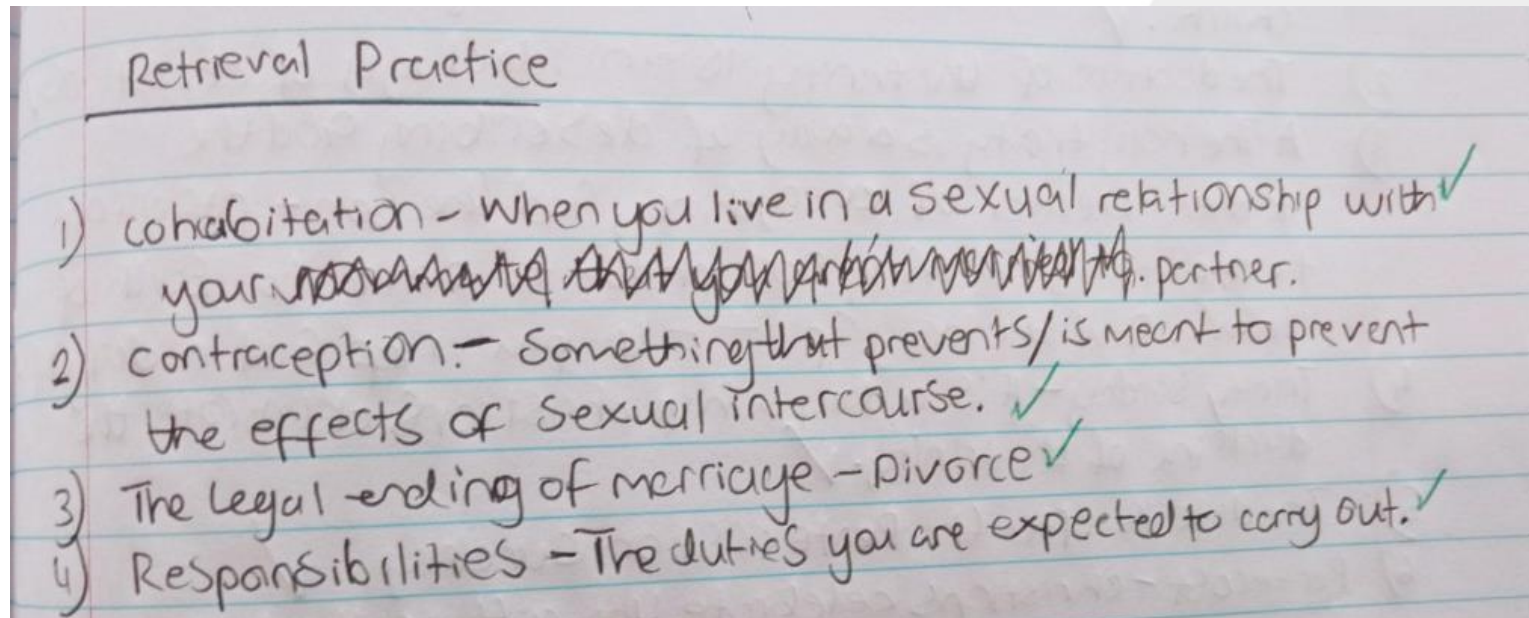 Retrieval Practice
1) cohabitation - When you live in a sexual relationship with
your partner.
2) contraception - Something that prevents/is meant to prevent
the effects of sexual intercourse.
3) The legal ending of marriage - Divorce
4) Responsibilities - The duties you are expected to carry out.